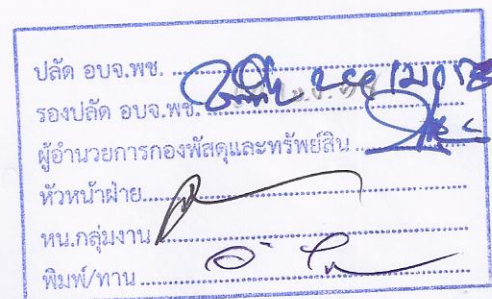 ปลัด อบจ.พช. ............
รองปลัด อบจ.พช. ............
ผู้อำนวยการกองพัสดุและทรัพย์สิน ............
หัวหน้าฝ่าย............
หน.กลุ่มงาน ............
พิมพ์/ทาน ............